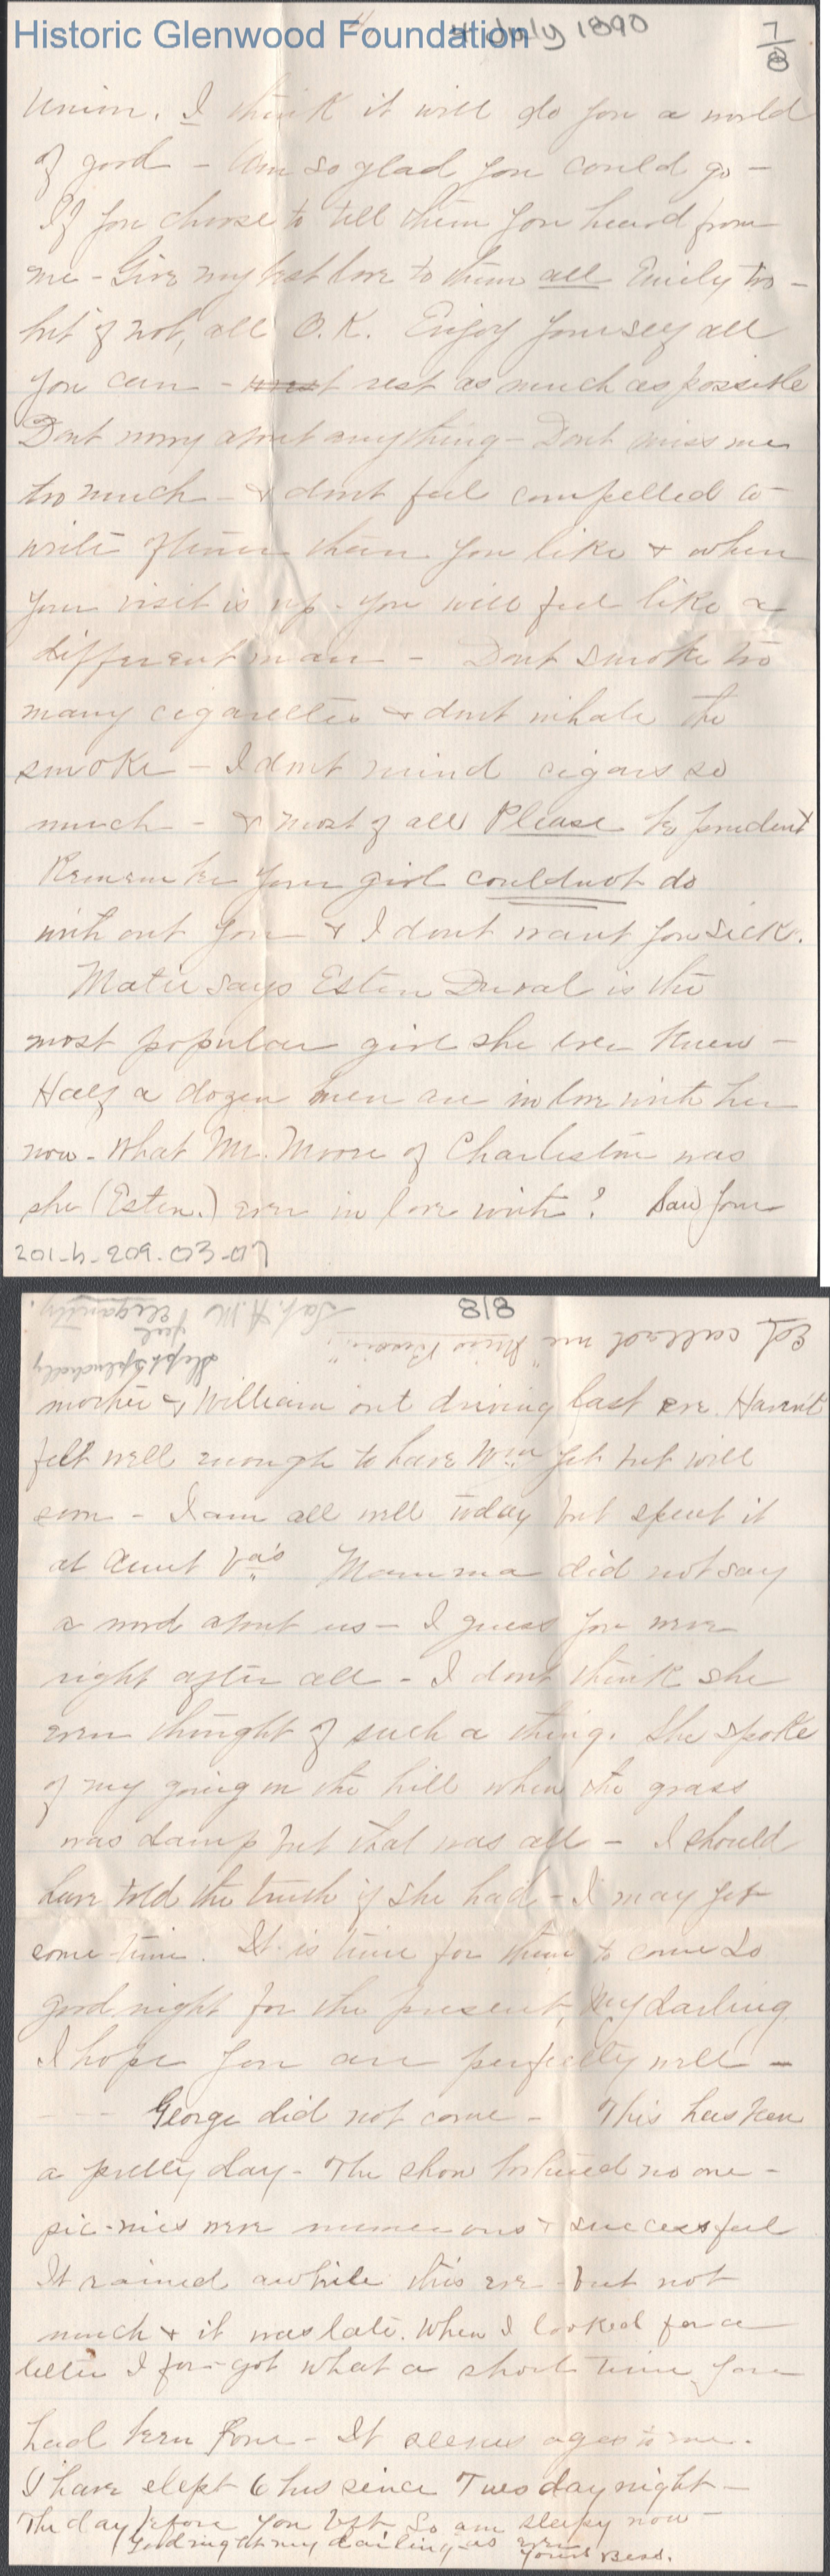 Historic Glenwood Foundation
4 July 1890
7/8
Union. I think it will do you a world
of good - Am so glad you could go -
If you choose to tell them you heard from
me - Give my best love to them all Emily too -
but if not, all O.K. Enjoy yourself all
you can - rest as much as possible
Dont worry about anything - Dont miss me
too much - & dont feel compelled to
write oftener than you like & when
your visit is up - you will feel like a
different man - Dont smoke too
many cigarettes & dont inhale the
smoke - I dont mind cigars so
much - & most of all Please be prudent
Remember your girl could not do
with out you & I dont want you sick.
Matie says Esten Duval is the
most popular girl she ever knew -
Half a dozen men are in love with her
now - What Mr. Moore of Charleston was
she (Esten.) ever in love with? Saw your
201-h-209-03-07
8/8
Ed called me "Miss
Sat. A.M.
Slept splendidly
feel elegantly.
mother & William out driving last eve. Havn't
felt well enough to have Wm yet but will
soon - I am all well today but spent it
at Aunt Va's Mamma did not say
a word about us - I guess you were
right after all - I dont think she
even thought of such a thing. She spoke
of my going on the hill when the grass
was damp but that was all - I should
have told the truth if she had - I may yet
some time. It is time for them to come so
good night for the present, my darling
I hope you are perfectly well -
George did not come - This has been
a pretty day - The show hurt no one -
pic-nics were numerous & successful
It rained awhile this eve - but not
much & it was late. When I looked for a
letter I for-got what a short time you
had been gone - It seems ages to me.
I have slept 6 hrs since Tuesday night -
The day before you left So am sleepy now -
Goodnight my darling as ever
Yours Bess.